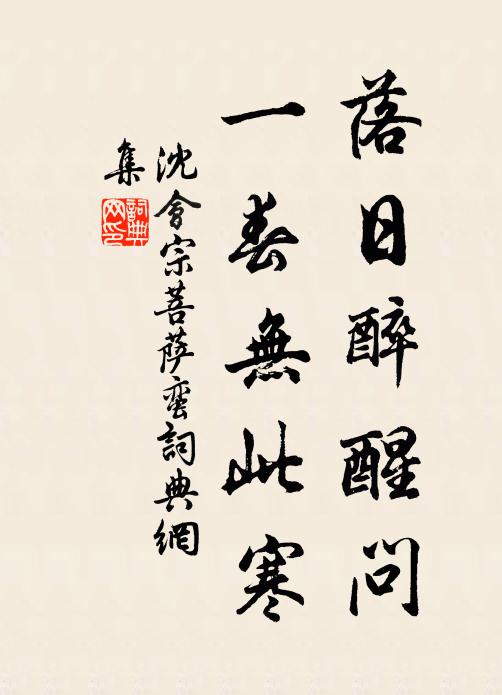 落日醉醒問
一春無此寒
沈會宗菩薩蠻詞典網
集
詞典網印